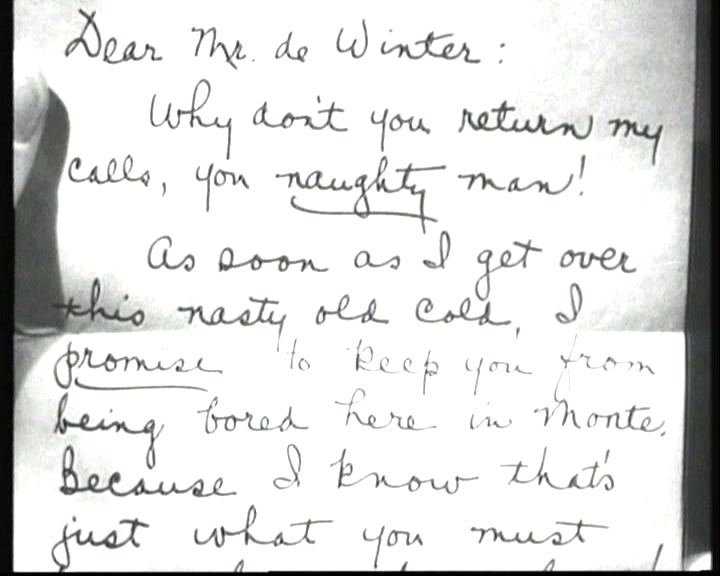 Dear Mr. de Winter:
Why don't you return my
calls, you naughty man!
As soon as I get over
this nasty old cold, I
promise to keep you from
being bored here in Monte.
Because I know that's
just what you must